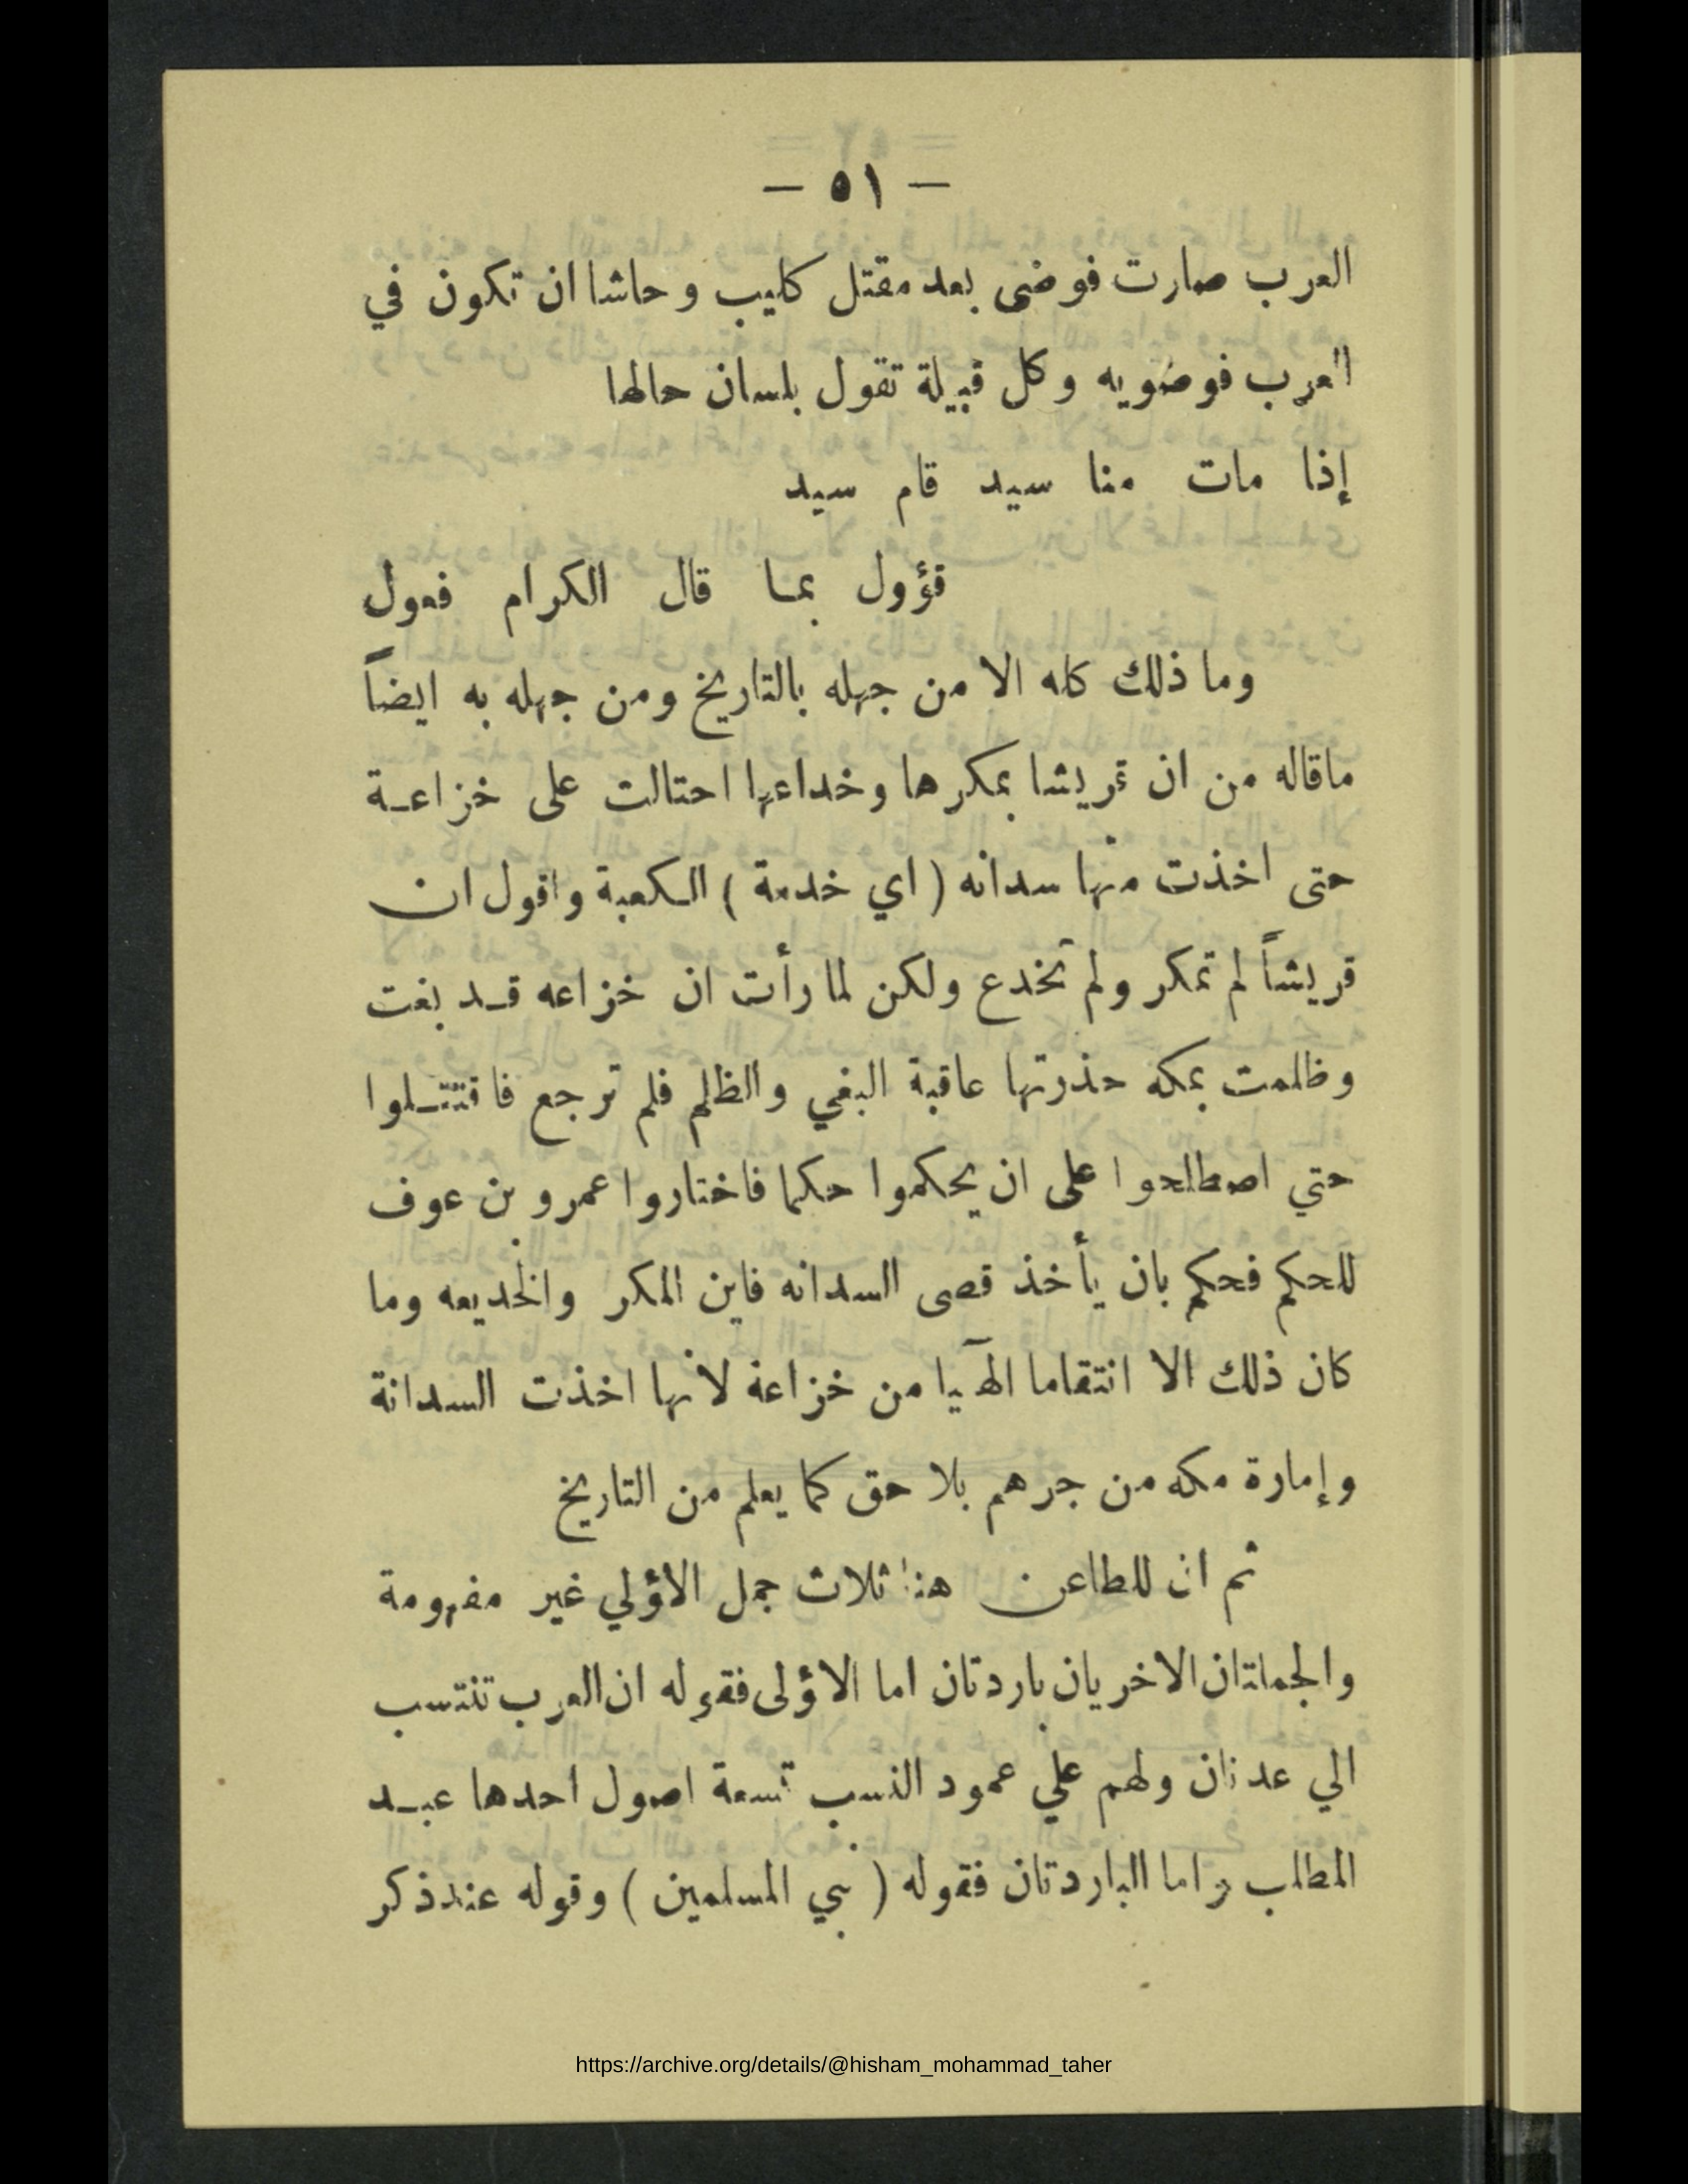 — ٥١ —
العرب صارت فوضى بعد مقتل كليب وحاشا ان تكون في
العرب فوضويه وكل قبيلة تقول بلسان حالها
إذا مات منا سيد قام سيد
قؤول بما قال الكرام فعول
وما ذلك كله الا من جهله بالتاريخ ومن جهله به ايضاً
ماقاله من ان قريشا بمكرها وخداعها احتالت على خزاعة
حتى اخذت منها سدانه ( اي خدمة ) الكعبة واقول ان
قريشاً لم تمكر ولم تخدع ولكن لما رأت ان خزاعه قد بغت
وظلمت بمكه حذرتها عاقبة البغي والظلم فلم ترجع فاقتتلوا
حتي اصطلحوا على ان يحكموا حكما فاختاروا عمرو بن عوف
للحكم فحكم بان يأخذ قصى السدانه فاين المكر والخديعه وما
كان ذلك الا انتقاما الهٓيا من خزاعة لأنها اخذت السدانة
وإمارة مكه من جرهم بلا حق كما يعلم من التاريخ
ثم ان للطاعن هنا ثلاث جمل الاؤلي غير مفهومة
والجملتان الاخريان باردتان اما الاؤلى فقوله ان العرب تنتسب
الي عدنان ولهم علي عمود النسب تسعة اصول احدها عبد
المطلب واما الباردتان فقوله ( نبي المسلمين ) وقوله عند ذكر
https://archive.org/details/@hisham_mohammad_taher